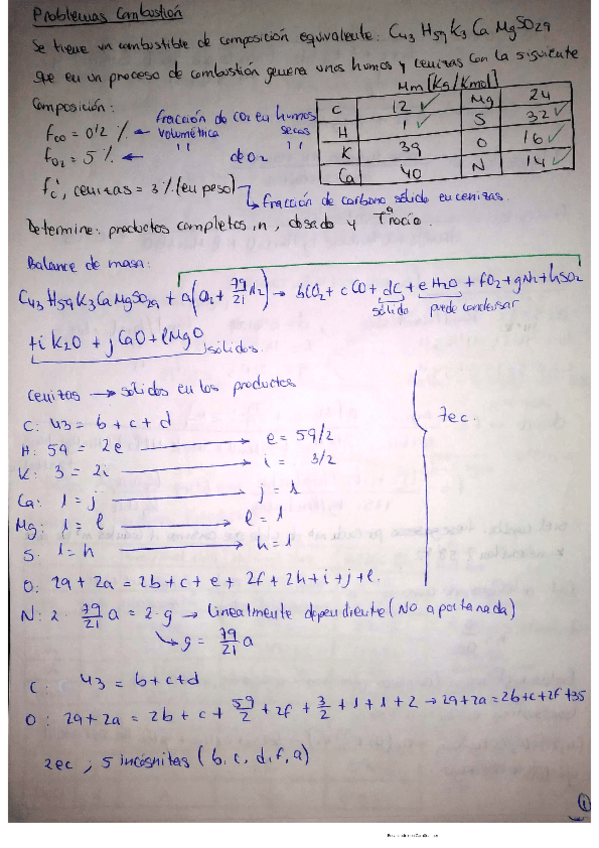 Problemas Combustión
Se tiene un combustible de composición equivalente: C43 H59 K3 Ca Mg S O29
que en un proceso de combustión genera unos humos y cenizas con la siguiente
composición:
Mm [Kg/Kmol]
C 12 ✓ Mg 24
H 1 ✓ S 32 ✓
K 39 O 16 ✓
Ca 40 N 14 ✓
fco = 0'2 % ← fracción de CO2 en humos
volumétrica secas
fO2 = 5 % ← " de O2 "
fc', cenizas = 3 % (en peso) → fracción de carbono sólido en cenizas.
Determine: productos completos, n, dosado y Tª rocío.
Balance de masa:
C43 H59 K3 Ca Mg S O29 + a(O2 + 79/21 N2) → bCO2 + cCO + dC + eH2O + fO2 + gN2 + hSO2
sólido puede condensar
+ i K2O + j CaO + l MgO
sólidos.
Cenizas → sólidos en los productos
C: 43 = b + c + d
H: 59 = 2e → e = 59/2
K: 3 = 2i → i = 3/2
Ca: 1 = j → j = 1
Mg: 1 = l → l = 1
S: 1 = h → h = 1
O: 29 + 2a = 2b + c + e + 2f + 2h + i + j + l.
7ec.
N: 2 · 79/21 a = 2 · g → linealmente dependiente (No aporta nada)
↳ g = 79/21 a
C: 43 = b + c + d
O: 29 + 2a = 2b + c + 59/2 + 2f + 3/2 + 1 + 1 + 2 → 29 + 2a = 2b + c + 2f + 35
2ec ; 5 incógnitas (b, c, d, f, a)
1